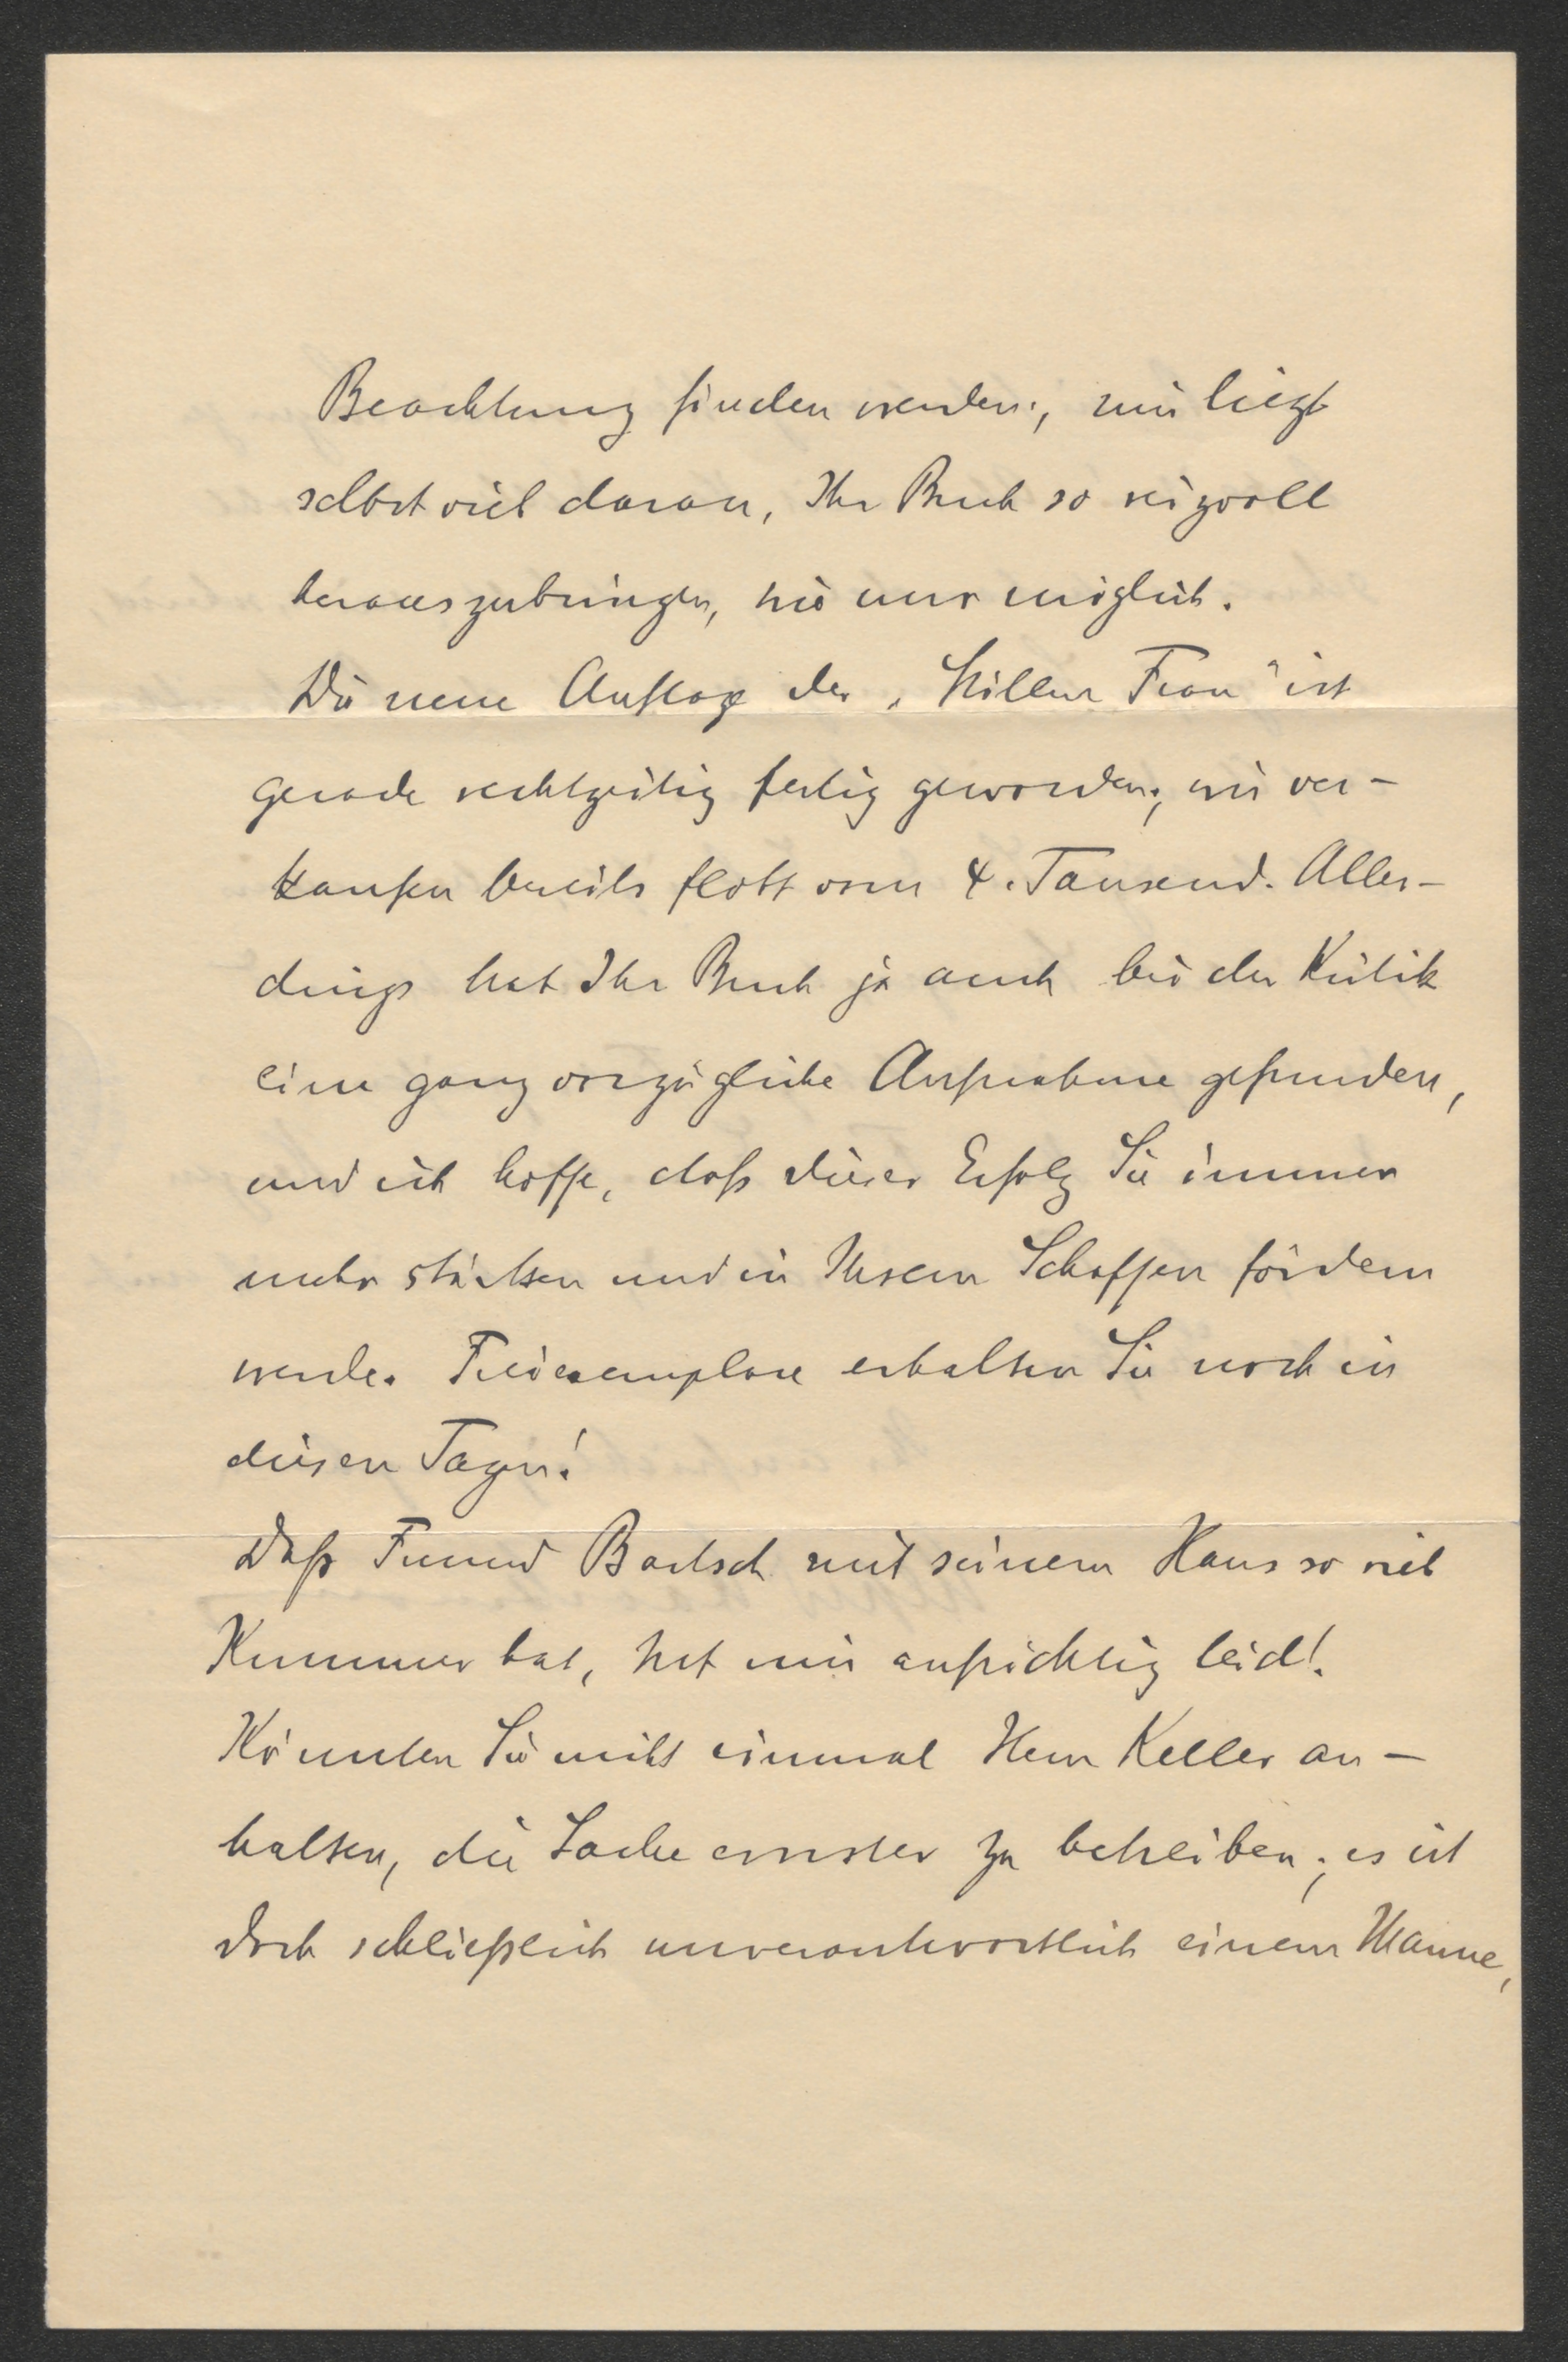 Beachtung finden werden; mir liegt
selbst viel daran, Ihr Buch so reizvoll
herauszubringen, wie nur möglich.
Die neue Auflage der „Stillen Frau" ist
gerade rechtzeitig fertig geworden; wir ver-
kaufen bereits flott vom 4. Tausend. Aller-
dings hat Ihr Buch ja auch bei der Kritik
eine ganz vorzügliche Aufnahme gefunden,
und ich hoffe, daß dieser Erfolg Sie immer
mehr stärken und in Ihrem Schaffen fördern
werde. Freiexemplare erhalten Sie noch in
diesen Tagen!
Daß Freund Bartsch mit seinem Haus so viel
Kummer hat, tut mir aufrichtig leid!
Könnten Sie nicht einmal Herrn Keller an-
halten, die Sache ernster zu betreiben; es ist
doch schließlich unverantwortlich einem Manne,